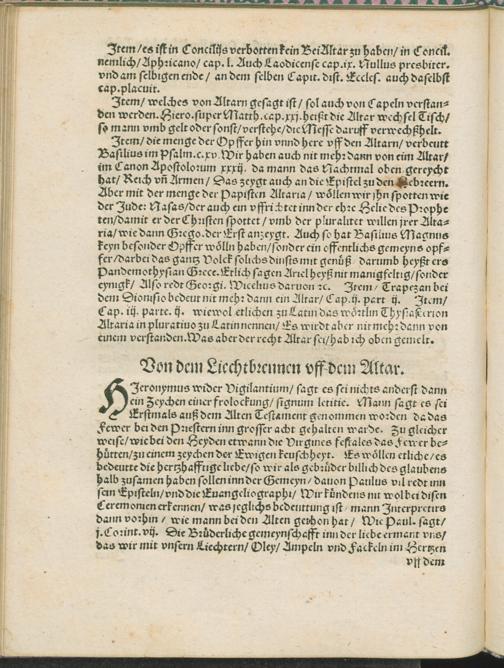 Item/ es ist in Concilijs verbotten kein BeiAltar zu haben/ in Concil.
nemlich/ Aphricano/ cap. l. Auch Laodicense cap. ix. Nullus presbiter.
vnd am selbigen ende/ an dem selben Capit. dist. Eccles. auch daselbst
cap. placuit.
Item/ welches von Altarn gesagt ist/ sol auch von Capeln verstan-
den werden. Hiero. super Matth. cap. xxj. heißt die Altar wechsel Tisch/
so mann vmb gelt oder sonst/ verstehe/ die Messe daruff verwechßhelt.
Item/ die menge der Opffer hin vnnd here vff den Altarn/ verbeutt
Basilius im Psalm. c.xv. Wir haben auch nit mehr dann von ein Altar/
im Canon Apostolorum xxxij. da mann das Nachtmal oben gereycht
hat/ Reich vñ Armen/ Das zeygt auch an die Epistel zu den
Aber mit der menge der Papisten Altaria/ wöllen wir jhn spotten wie
der Jude: Nasas/ der auch ein vffricht inn der ehre Helie des Prophe
ten/ damit er der Christen spottet/ vmb der pluralitet willen jrer Alta-
ria/ wie dann Grego. der Erst anzeygt. Auch so hat Basilius Magnus
keyn besonder Opffer wölln haben/ sonder ein offentlichs gemeyns opf-
fer/ darbei das gantz Volck solichs dinsts mit genüß darumb heyßt ers
Pandemothysian Grece. Etlich sagen Ariel heyß nit manigfeltig/ sonder
eynigk/ Also redt Georgi. Wicelius daruon ꝛc. Item/ Trapezan bei
dem Dionisio bedeut nit mehr dann ein Altar/ Cap. ij. part ij. Item/
Cap. iij. parte. ij. wiewol etlichen zu Latin das wörtlin Thysiasterion
Altaria in pluratiuo zu Latin nennen/ Es wirdt aber nit mehr dann von
einem verstanden. Was aber der recht Altar sei/ hab ich oben gemelt.
Von dem Liechtbrennen vff dem Altar.
HIeronymus wider Vigilantium/ sagt es sei nichts anderst dann
ein zeychen einer frolockung/ signum letitie. Mann sagt es sei
Erstmals auß dem Alten Testament genommen worden da das
Fewer bei den Priestern inn grosser acht gehalten warde. Zu gleicher
weise/ wie bei den Heyden etwann die Virgines festales das Fewer be-
hütten/ zu einem zeychen der Ewigen keuschheyt. Es wöllen etliche/ es
bedeutte die hertzhafftige liebe/ so wir als gebrüder billich des glaubens
halb zusamen haben sollen inn der Gemeyn/ dauon Paulus vil redt inn
sein Episteln/ vnd die Euangeliographi/ Wir kündens nit wol bei disen
Ceremonien erkennen/ was jeglichs bedeuttung ist/ mann Interpretirs
dann vorhin/ wie mann bei den Alten gethon hat/ Wie Paul. sagt/
j. Corint. vij. Die Brüderliche gemeynschafft inn der liebe ermant vns/
das wir mit vnsern Liechtern/ Oley/ Ampeln vnd Fackeln im Hertzen
vff dem